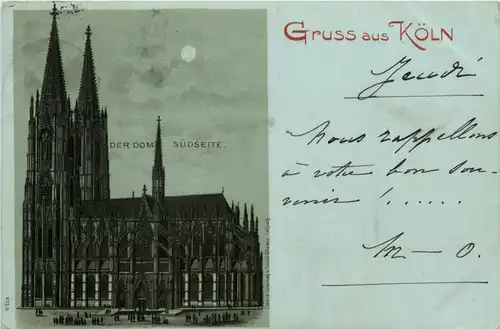 Gruss aus Köln
DER DOM SÜDSEITE.
Jeudi
Nous rappellons
à votre bon sou-
venir !......
M – O.